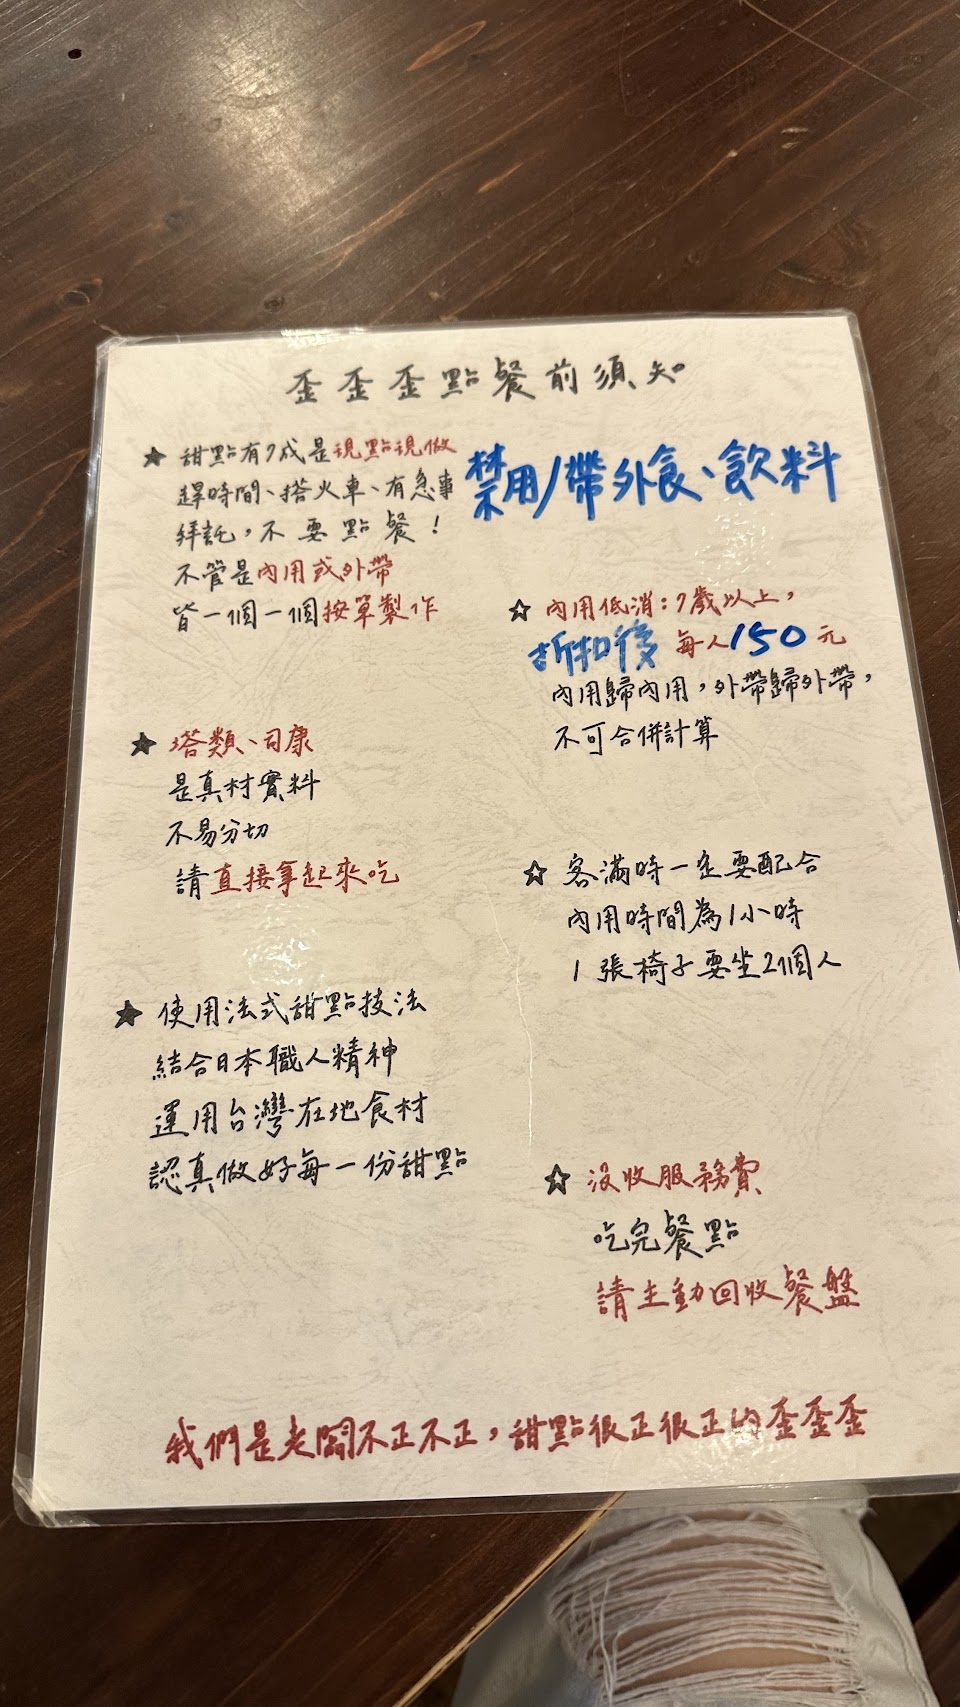 歪歪歪點餐前須知
★ 甜點有7成是現點現做
趕時間、搭火車、有急事
拜託,不要點餐!
不管是內用或外帶
皆一個一個按單製作
★ 塔類、司康
是真材實料
不易分切
請直接拿起來吃
★ 使用法式甜點技法
結合日本職人精神
運用台灣在地食材
認真做好每一份甜點
禁用/帶外食、飲料
☆ 內用低消:7歲以上,
折扣後 每人150元
內用歸內用,外帶歸外帶,
不可合併計算
☆ 客滿時一定要配合
內用時間為1小時
1張椅子要坐2個人
☆ 沒收服務費
吃完餐點
請主動回收餐盤
我們是老闆不正不正,甜點很正很正的歪歪歪